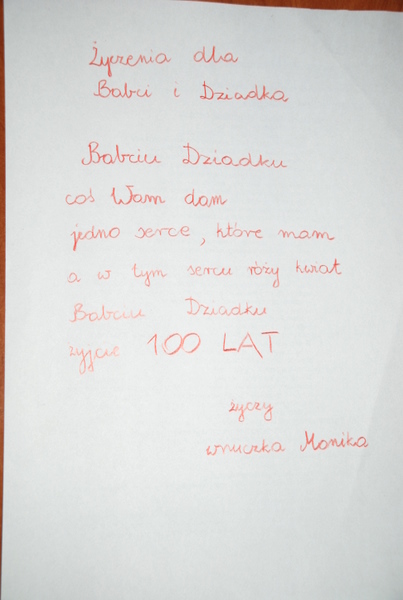 Życzenia dla
Babci i Dziadka
Babciu Dziadku
coś Wam dam
jedno serce, które mam
a w tym sercu róży kwiat
Babciu Dziadku
żyjcie 100 LAT
życzy
wnuczka Monika